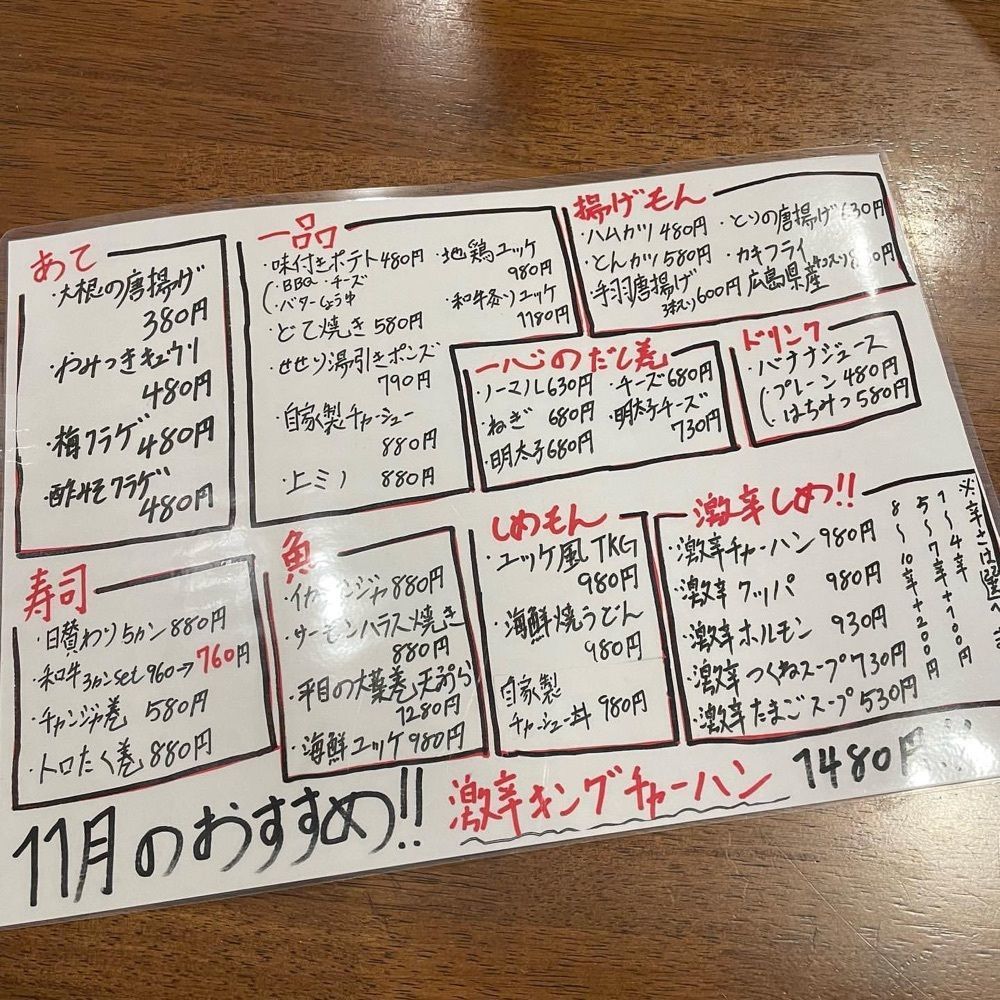 あて
・大根の唐揚げ
380円
・やみつきキュウリ
480円
・梅クラゲ 480円
・酢みそクラゲ
480円
一品
・味付きポテト 480円
(・BBQ ・チーズ
・バターしょうゆ
・どて焼き 580円
・せせり湯引きポンズ
790円
・自家製チャーシュー
880円
・上ミノ 880円
・地鶏ユッケ
980円
・和牛炙りユッケ
1180円
揚げもん
・ハムカツ 480円
・とんカツ 580円
・手羽唐揚げ
3本入り 600円
・とりの唐揚げ 630円
・カキフライ
広島県産
一心のだし巻
・ノーマル 630円
・ねぎ 680円
・明太子 680円
・チーズ 680円
・明太子チーズ
730円
ドリンク
・バナナジュース
(・プレーン 480円
・はちみつ 580円
寿司
・日替わり5カン 880円
・和牛3カンset 960→760円
・チャンジャ巻 580円
・トロたく巻 880円
魚
・イカチャンジャ 880円
・サーモンハラス焼き
880円
・平目の大葉巻天ぷら
1280円
・海鮮ユッケ 980円
しめもん
・ユッケ風TKG
980円
・海鮮焼うどん
980円
・自家製
チャーシュー丼 980円
激辛しめ!!
・激辛チャーハン 980円
・激辛クッパ 980円
・激辛ホルモン 930円
・激辛つくねスープ 730円
・激辛たまごスープ 530円
※辛さは選べ
1〜4辛
5〜7辛+100円
8〜10辛+200円
11月のおすすめ!!
激辛キングチャーハン 1480円